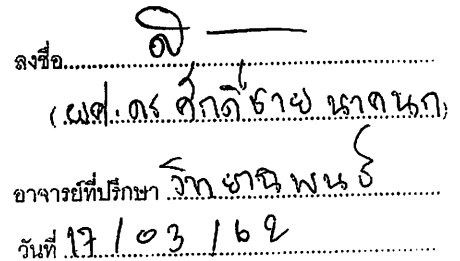 ลงชื่อ
(ผศ.ดร ศักดิ์ชาย นาคนก)
อาจารย์ที่ปรึกษา วิทยานิพนธ์
วันที่ 17 / 03 / 62